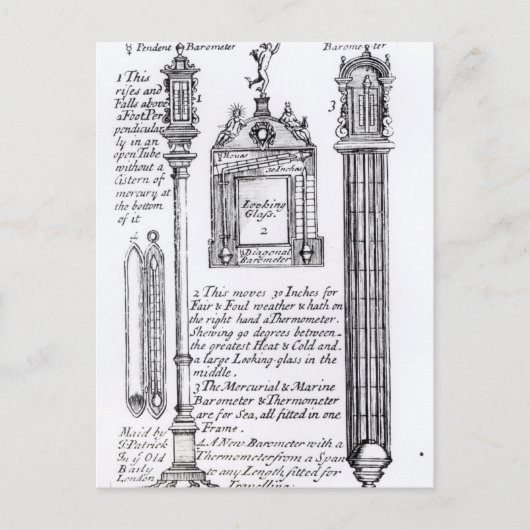 ☿ Pendent Barometer
Barometer
1 This
rises and
Falls above
a Foot Per
pendicular
ly in an
open Tube
without a
Cistern of
mercury at
the bottom
of it
1
3
30 Inches
Looking
Glass.
2
Diagonal
Barometer
4
2 This moves 30 Inches for
Fair & Foul weather & hath on
the right hand a Thermometer.
Shewing 90 degrees between
the greatest Heat & Cold and
a large Looking-glass in the
middle.
3 The Mercurial & Marine
Barometer & Thermometer
are for Sea, all fitted in one
Frame.
4 A New Barometer with a
Thermometer from a Span
to any Length, fitted for
Travelling.
Maid by
J. Patrick
In ye Old
Baily
London